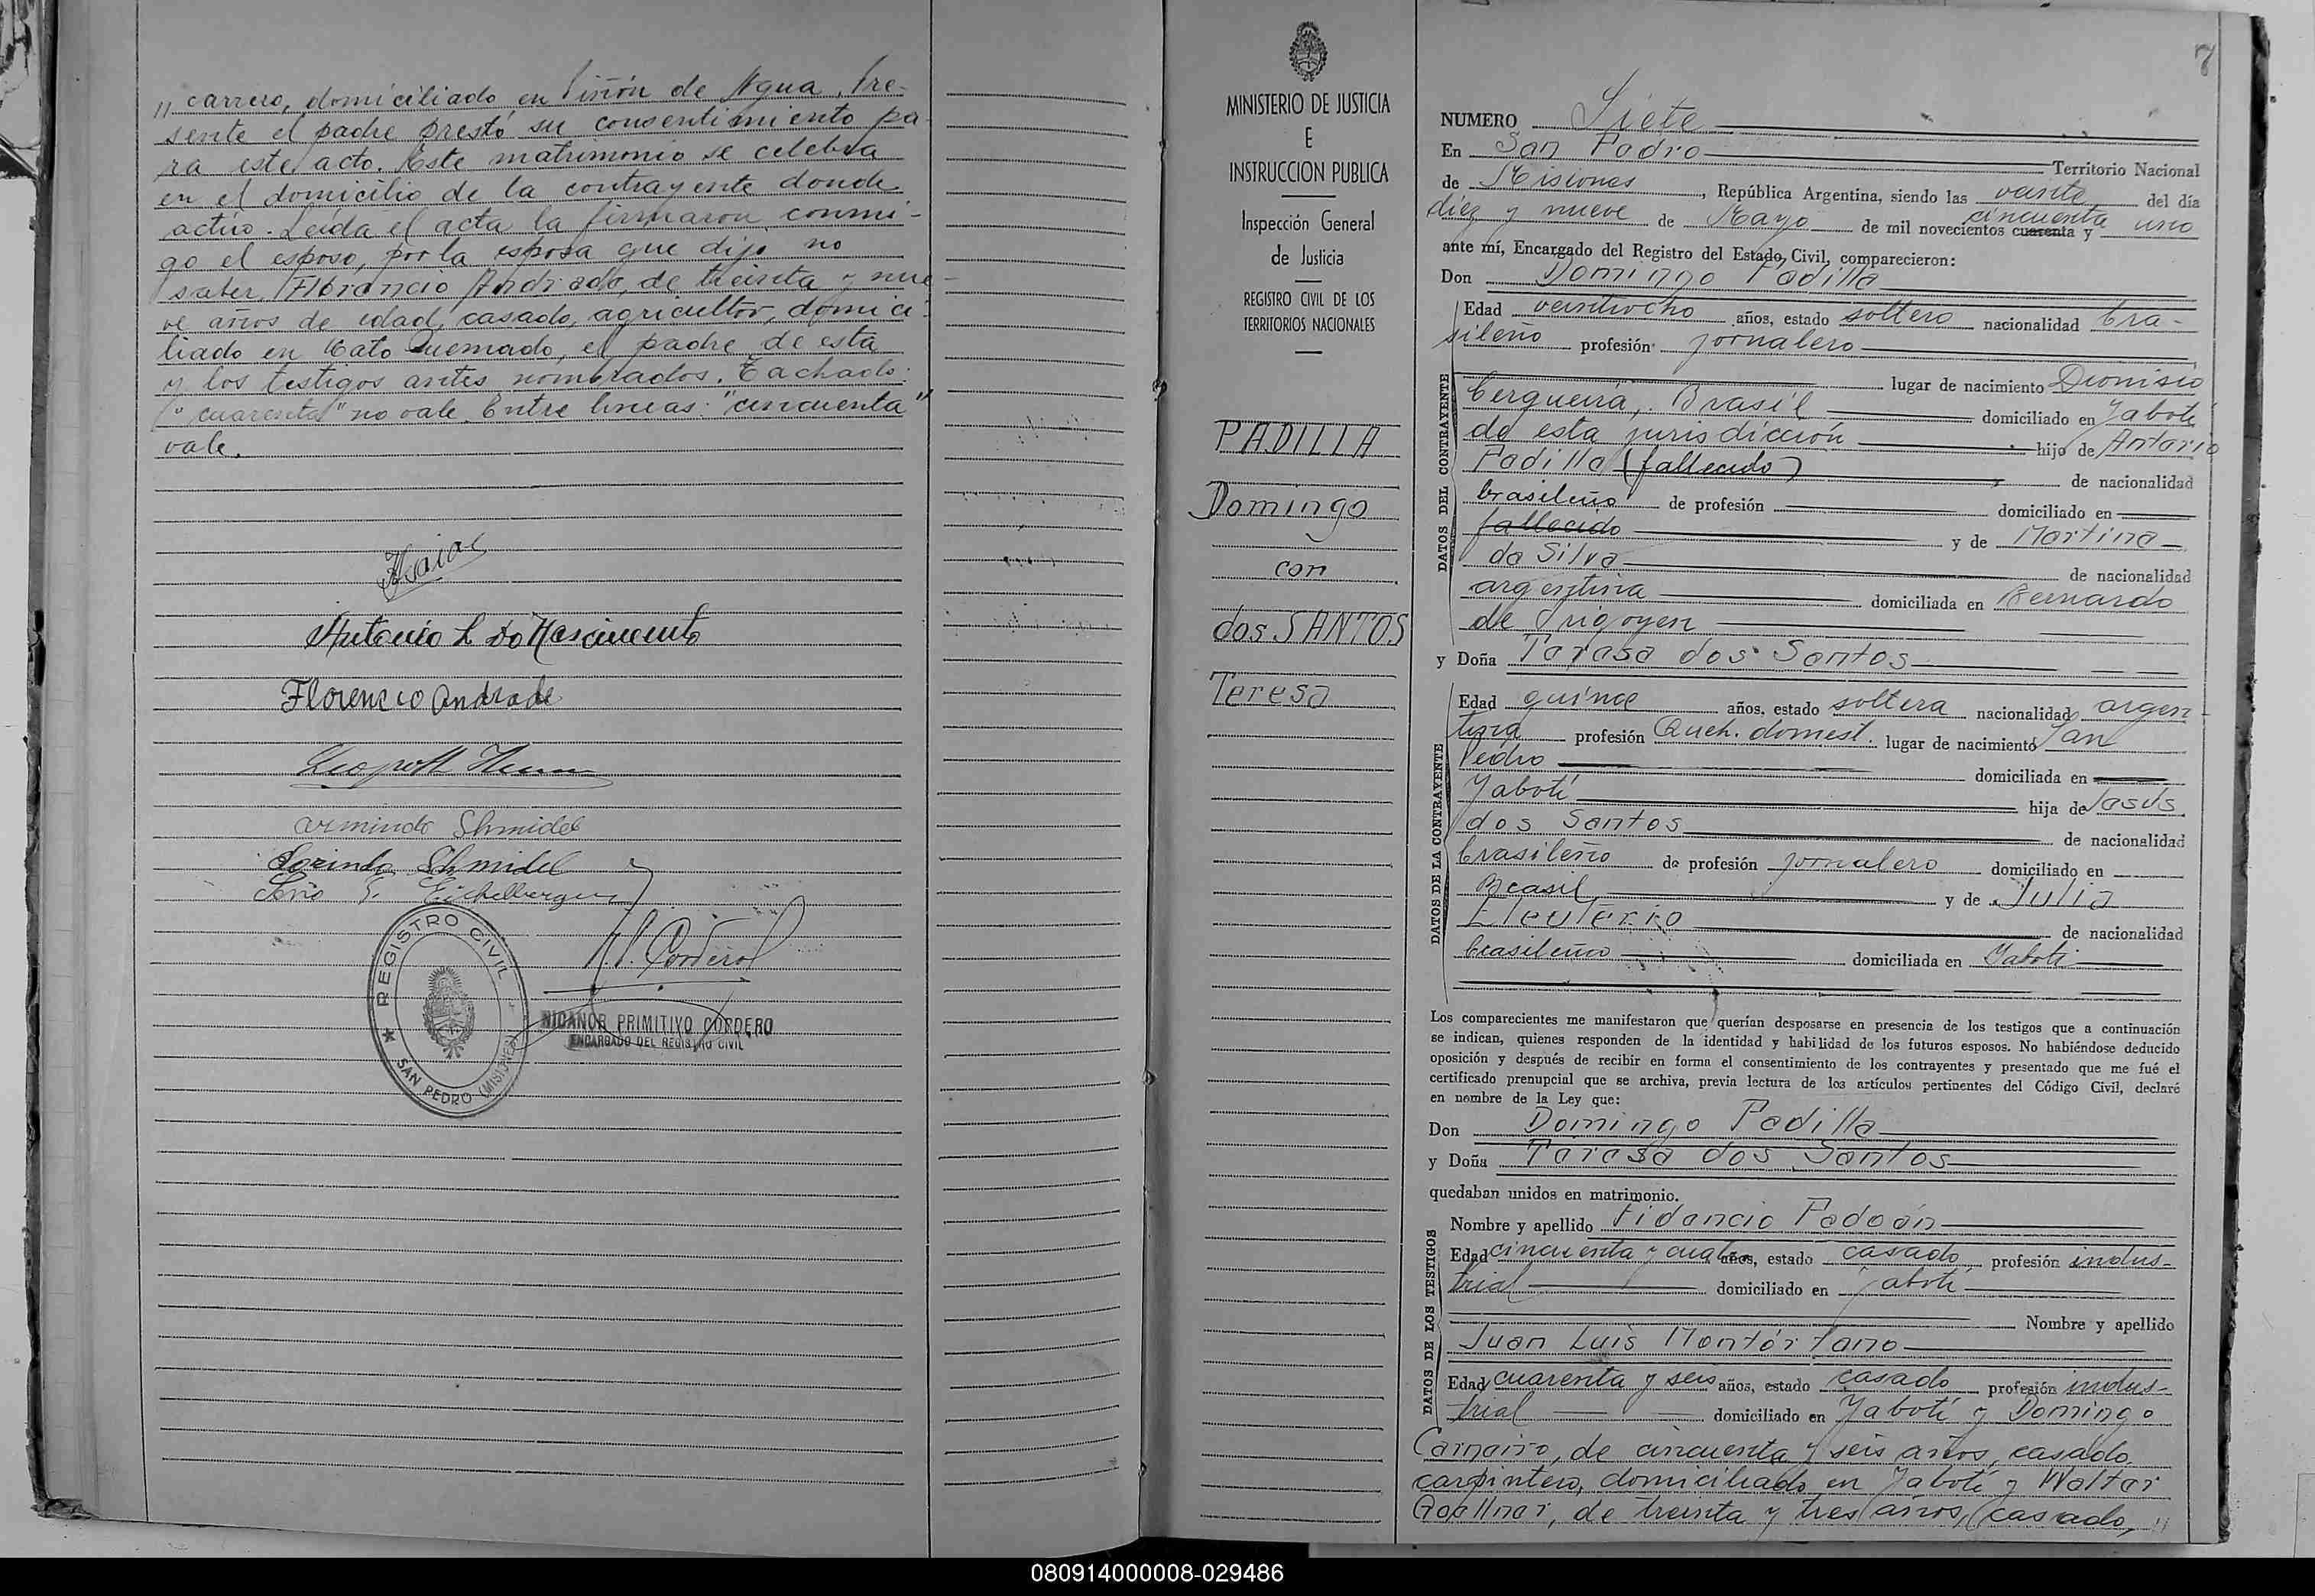 // carrero, domiciliado en Piñón de Agua. Pre-
sente el padre prestó su consentimiento pa-
ra este acto. Este matrimonio se celebra
en el domicilio de la contrayente donde
actúo. Leída el acta la firmaron conmi-
go el esposo, por la esposa que dijo no
saber, Florencio Andrade, de treinta y nue-
ve años de edad, casado, agricultor, domici-
liado en Gato Quemado, el padre de esta
y los testigos antes nombrados. Tachado:
"cuarenta" no vale. Entre lineas: "cincuenta"
vale.
Antonio L Do Nascimento
Florencio Andrade
Armindo Shmidel
Lorindo Shmidel
Eichelberger
N.P. Corderol
REGISTRO CIVIL
★ SAN PEDRO (MISIONES)
NICANOR PRIMITIVO CORDERO
ENCARGADO DEL REGISTRO CIVIL
MINISTERIO DE JUSTICIA
E
INSTRUCCION PUBLICA
Inspección General
de Justicia
REGISTRO CIVIL DE LOS
TERRITORIOS NACIONALES
PADILLA
Domingo
con
dos SANTOS
Teresa
7
NUMERO Siete
En San Pedro Territorio Nacional
de Misiones, República Argentina, siendo las veinte del día
diez y nueve de Mayo de mil novecientos cuarenta y cincuenta uno
ante mí, Encargado del Registro del Estado Civil, comparecieron:
Don Domingo Padilla
DATOS DEL CONTRAYENTE
Edad veintiocho años, estado soltero nacionalidad bra-
sileño profesión jornalero
lugar de nacimiento Dionisio
Cerqueira, Brasil domiciliado en Yabotí
de esta jurisdicción hijo de Antonio
Padilla (fallecido) de nacionalidad
brasileño de profesión domiciliado en
fallecido y de Martina
da Silva de nacionalidad
argentina domiciliada en Bernardo
de Irigoyen
y Doña Teresa dos Santos
DATOS DE LA CONTRAYENTE
Edad quince años, estado soltera nacionalidad argen-
tina profesión Queh. domest. lugar de nacimiento San
Pedro domiciliada en
Yabotí hija de Jesús
dos Santos de nacionalidad
brasileño de profesión jornalero domiciliado en
Brasil y de Julia
Eleuterio de nacionalidad
brasileña domiciliada en Yabotí
Los comparecientes me manifestaron que querían desposarse en presencia de los testigos que a continuación
se indican, quienes responden de la identidad y habilidad de los futuros esposos. No habiéndose deducido
oposición y después de recibir en forma el consentimiento de los contrayentes y presentado que me fué el
certificado prenupcial que se archiva, previa lectura de los artículos pertinentes del Código Civil, declaré
en nombre de la Ley que:
Don Domingo Padilla
y Doña Teresa dos Santos
quedaban unidos en matrimonio.
DATOS DE LOS TESTIGOS
Nombre y apellido Fidencio Padoán
Edad cincuenta y cuatro años, estado casado, profesión indus-
trial domiciliado en Yabotí
Nombre y apellido
Juan Luis
Edad cuarenta y seis años, estado casado profesión indus-
trial domiciliado en Yabotí y Domingo
Carneiro, de cincuenta y seis años, casado,
carpintero, domiciliado en Yabotí y Walter
Goellner, de treinta y tres años, casado, //
080914000008-029486